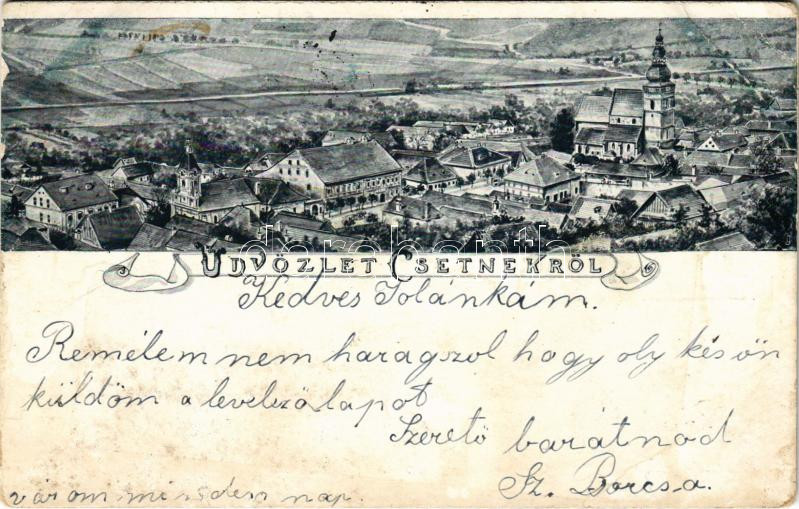 ÜDVÖZLET CSETNEKRŐL
Kedves Jolánkám.
Remélem nem haragszol hogy oly késön
küldöm a levelezőlapot
Szerető barátnöd
Sz. Borcsa.
várom minden nap.